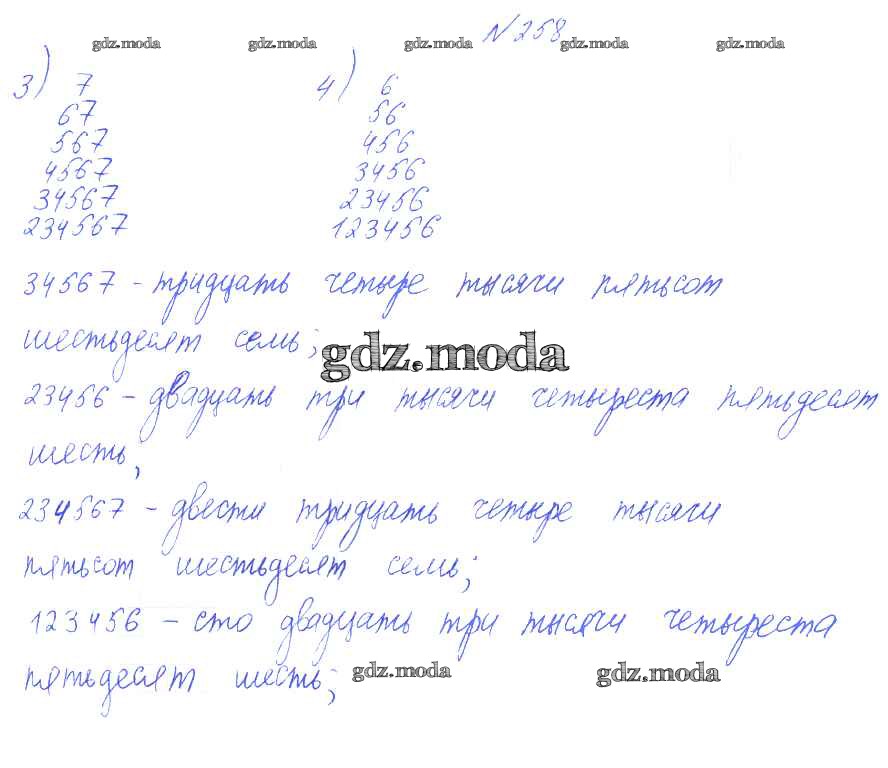 №258
gdz.moda gdz.moda gdz.moda gdz.moda gdz.moda
3) 7 4) 6
67 56
567 456
4567 3456
34567 23456
234567 123456
34567 – тридцать четыре тысячи пятьсот
шестьдесят семь;
gdz.moda
23456 – двадцать три тысячи четыреста пятьдесят
шесть;
234567 – двести тридцать четыре тысячи
пятьсот шестьдесят семь;
123456 – сто двадцать три тысячи четыреста
пятьдесят шесть;
gdz.moda gdz.moda